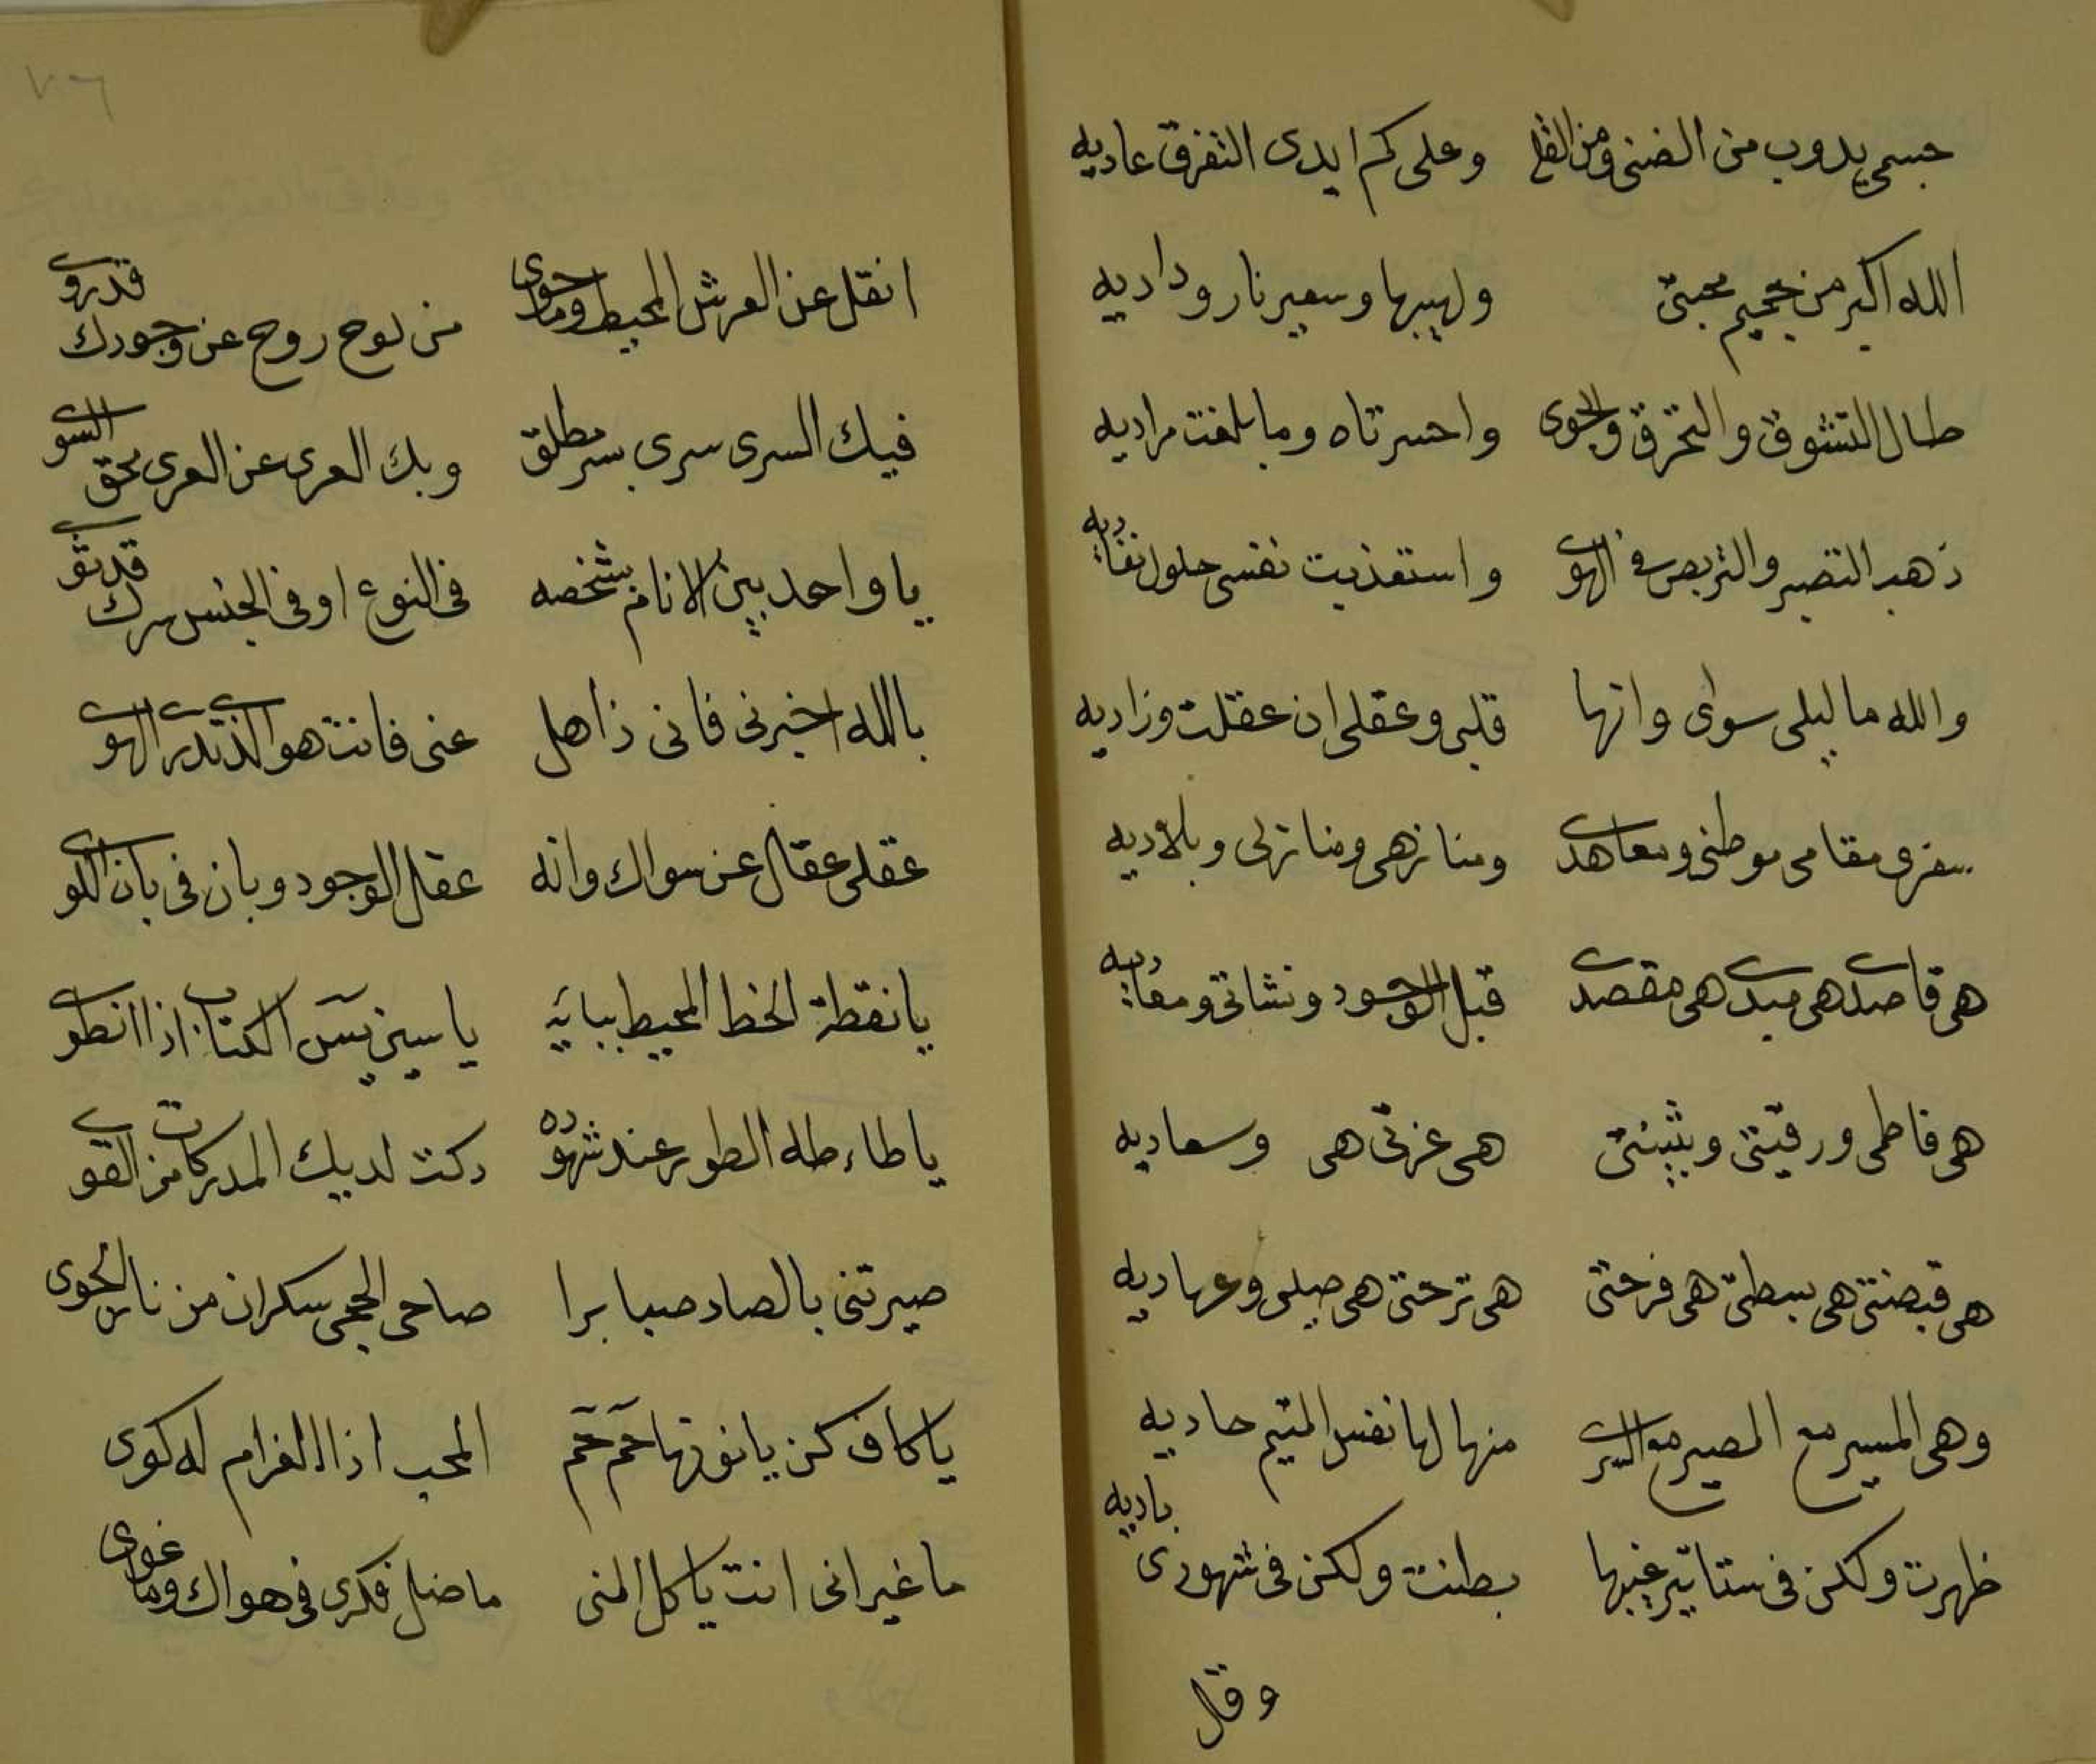 جسمي يدوب من الضنى ومن القلا وعلى كم ايدى التفرق عاديه
الله اكبر من جحيم محبتى ولهيبها وسعير نار وداديه
طال التشوق والتحرق والجوى واحسرتاه وما بلغت مراديه
ذهب التصبر والتربص فى الهوى واستعذبت نفسى حلول نفاديه
والله ما ليلى سواى وانها قلبى وعقلى ان عقلت وزاديه
سفرى مقامى موطنى ومعاهدى ومنازهى ومنازلى وبلاديه
هى قاصدى هى مبدى هى مقصدى قبل الوجود ونشاتى ومعاديه
هى فاطمى ورقيتى وبثينتى هى عزتى هى وسعاديه
هى قبضتى هى بسطتى هى فرحتى هى ترحتى هى صبلى وعهاديه
وهى المسير مع المصير مع السرى منها لها نفس المتيم حاديه
ظهرت ولكن فى ستائر غيبها بطنت ولكن فى شهودى باديه
وقال
٧٠٦
انقل عن العرش المحيط وما حوى من لوح روح عن وجودك قد روى
فيك السرى سرى بسر مطلق وبك العرى عن العرى بحق السوى
يا واحد بين الانام بشخصه فى النوع او فى الجنس سرك قد ثوى
بالله اخبرنى فانى ذاهل عنى فانت هو الذى تدرى الهوى
عقلى عقال عن سواك وانه عقل الوجود وبان فى بان اللوى
يا نقطة الخط المحيط ببائه يا سين يس الكتاب اذا انطوى
يا طاء طه الطور عند شهوده دكت لديك المدركات من القوى
صيرتنى بالصاد صبا برا صاحى الحجى سكران من ناس الجوى
يا كاف كن يا نونها حم حم المحب اذا الغرام له كوى
ما غير انى انت يا كل المنى ما ضل فكرى فى هواك وما غوى